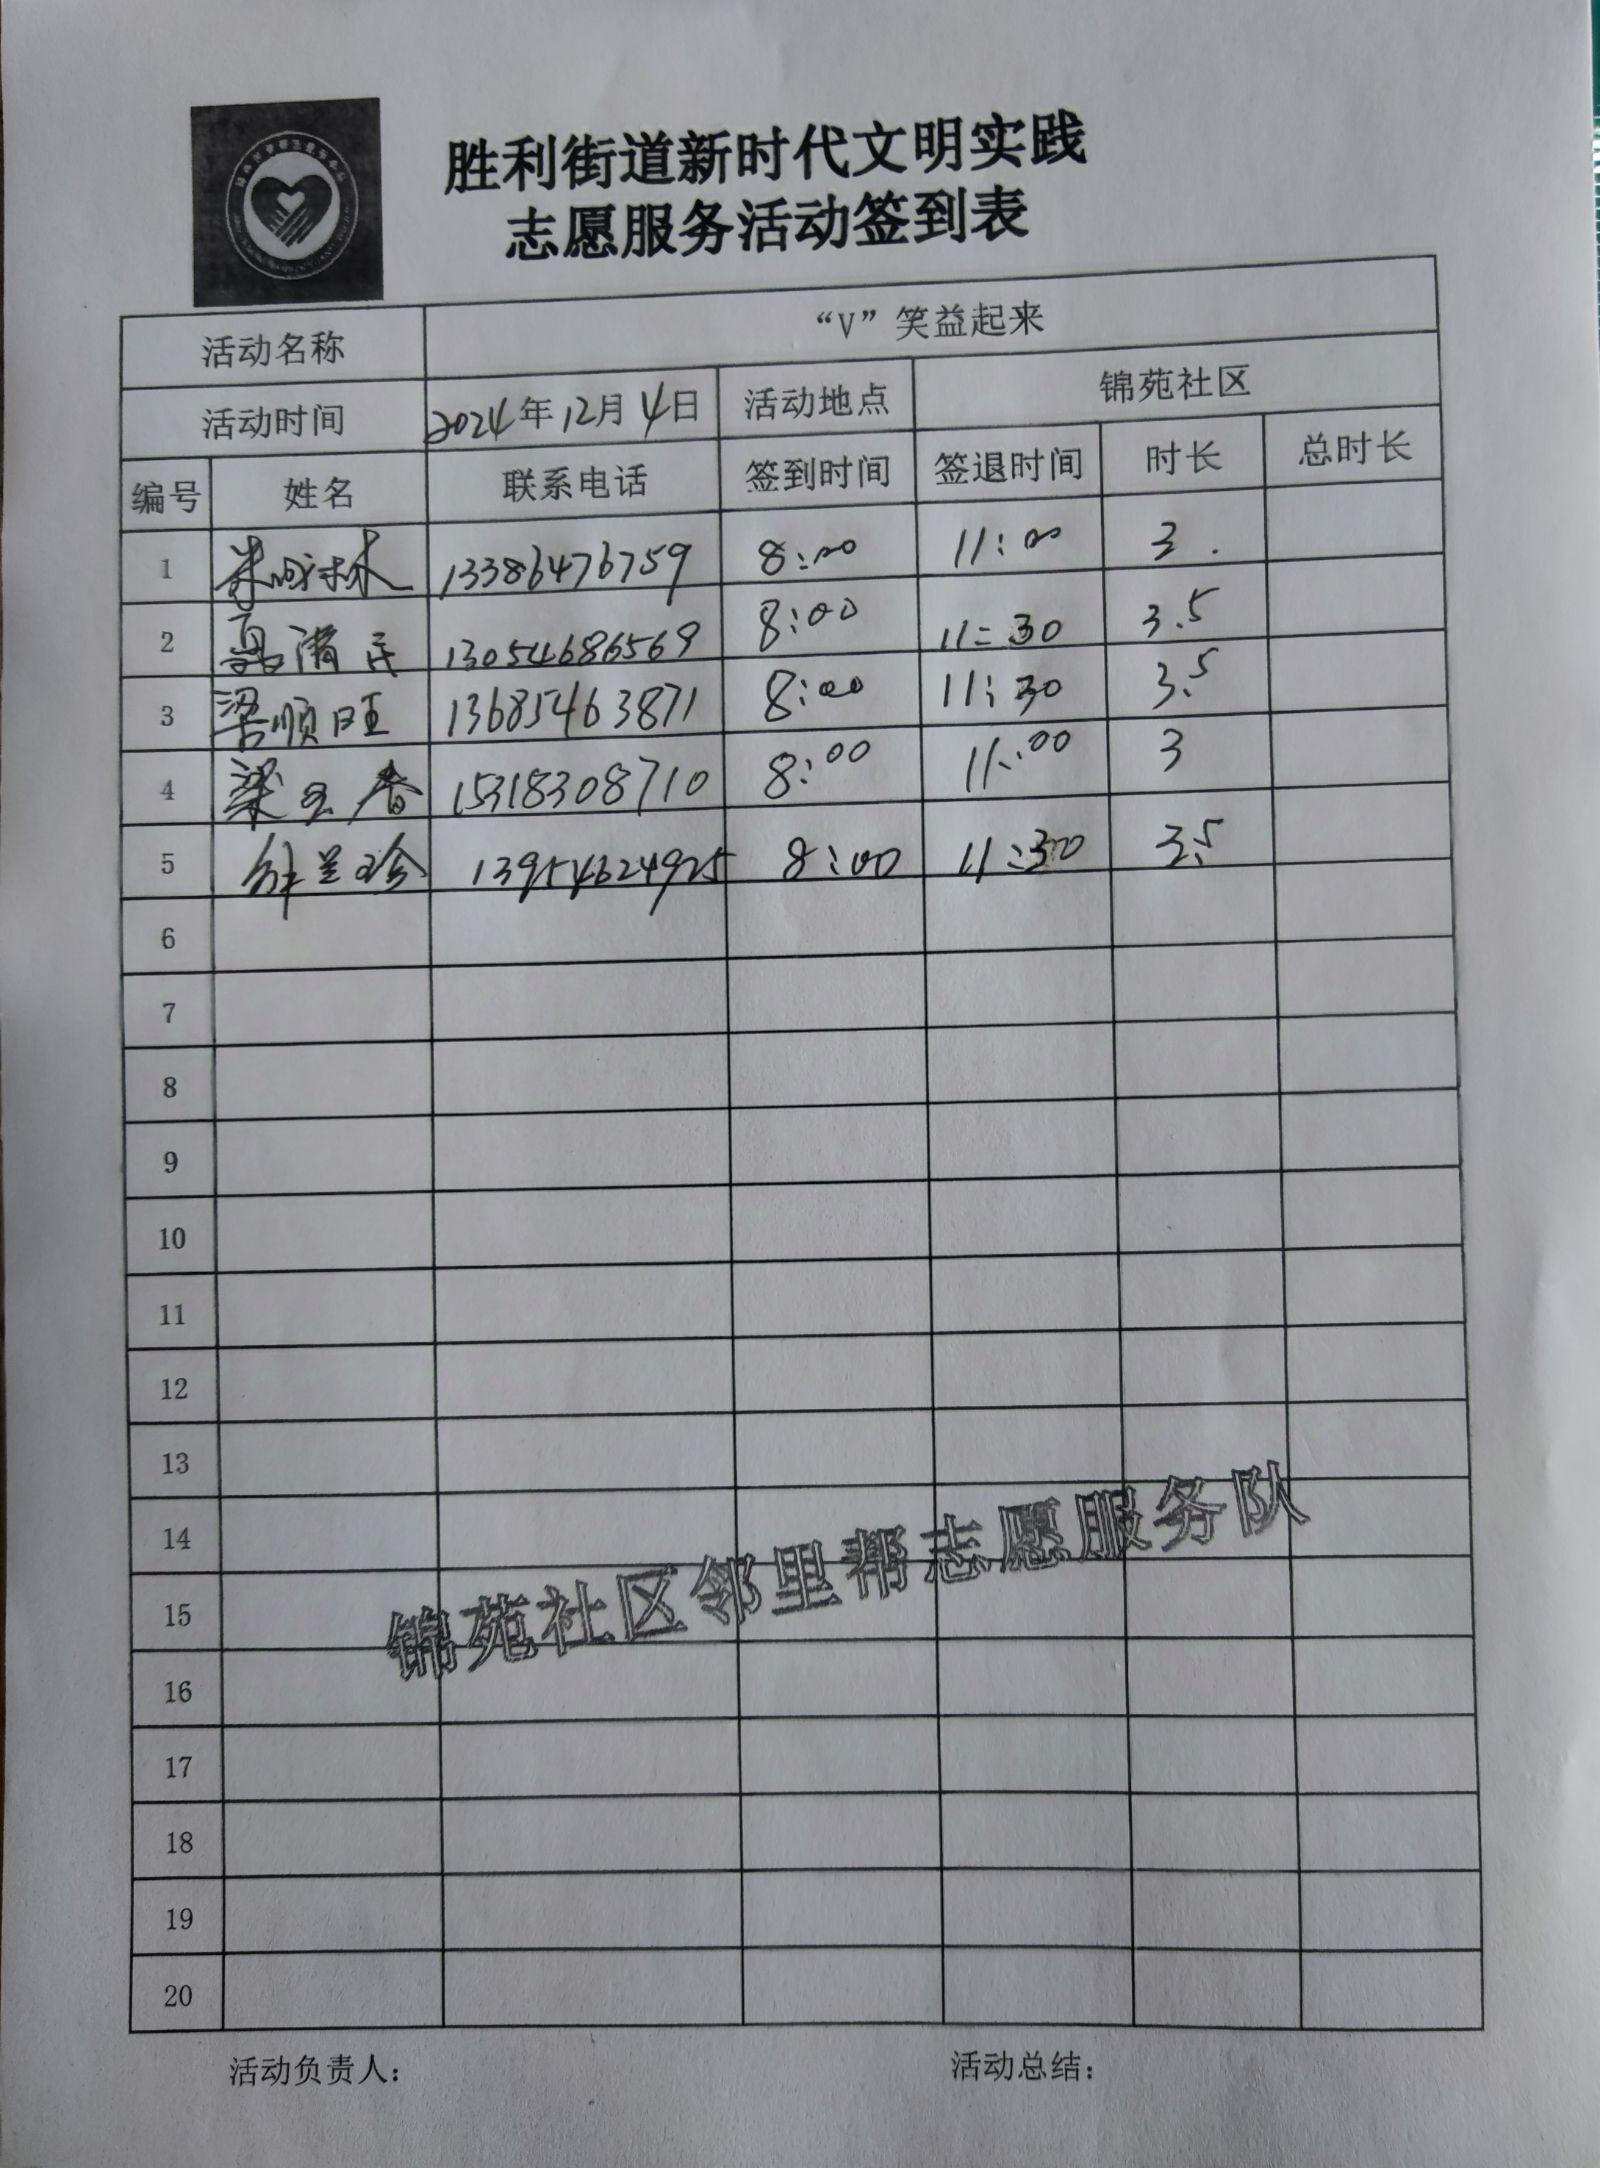 胜利街道新时代文明实践
志愿服务活动签到表
活动名称 “V”笑益起来
活动时间 2024年12月4日 活动地点 锦苑社区
编号 姓名 联系电话 签到时间 签退时间 时长 总时长
1 13386476759 8:00 11:00 3.
2 高清民 13054686569 8:00 11:30 3.5
3 梁顺旺 13685463871 8:00 11:30 3.5
4 梁玉春 15318308710 8:00 11:00 3
5 13954624925 8:00 11:30 3.5
6
7
8
9
10
11
12
13
14
锦苑社区邻里帮志愿服务队
15
16
17
18
19
20
活动负责人: 活动总结: